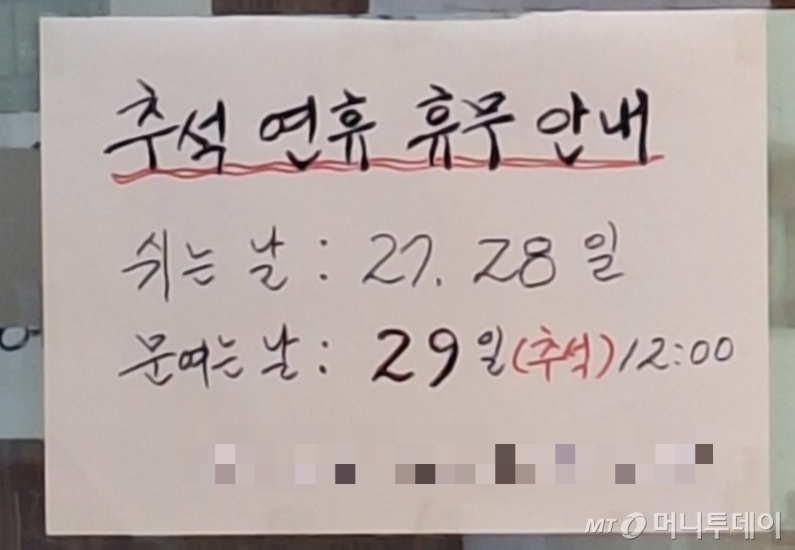 추석 연휴 휴무 안내
쉬는 날 : 27. 28 일
문여는 날 : 29일(추석)12:00
MT 머니투데이